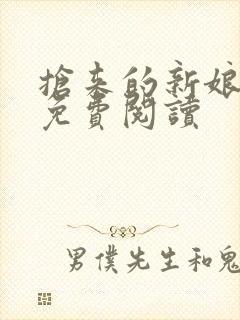 搶來的新娘
免費閱讀
男僕先生和鬼